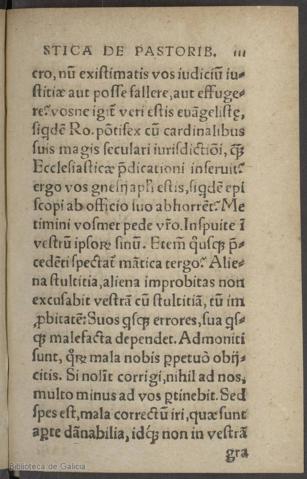 STICA DE PASTORIB. iii
cro, nū existimatis vos iudiciū iu-
stitiæ aut posse fallere, aut effuge-
re? vosne igit̃ veri estis euāgelistę,
siqdē Ro. pōtifex cū cardinalibus
suis magis seculari iurisdictiōi, q̃ꝫ
Ecclesiasticæ p̃dicationi inseruit?
ergo vos gnesij apli estis, siqdē epi
scopi ab officio suo abhorrēt? Me
timini vosmet pede vr̃o. Inspuite ī
vestrū ipsorꝫ sinū. Etem̃ qusqꝫ p̃-
cedēti spectat̃ māticæ tergo? Alie-
na stultitia, aliena improbitas non
excusabit vestrā cū stultitiā, tū im
ꝓbitatē: Suos qsqꝫ errores, sua qs-
qꝫ malefacta dependet. Admoniti
sunt, q̃rꝫ mala nobis ꝑpetuò obij-
citis. Si nolīt corrigi, nihil ad nos,
multo minus ad vos ꝑtinebit. Sed
spes est, mala correctū iri, quæ sunt
aꝑte dānabilia, idqꝫ non in vestrā
gra
Biblioteca de Galicia